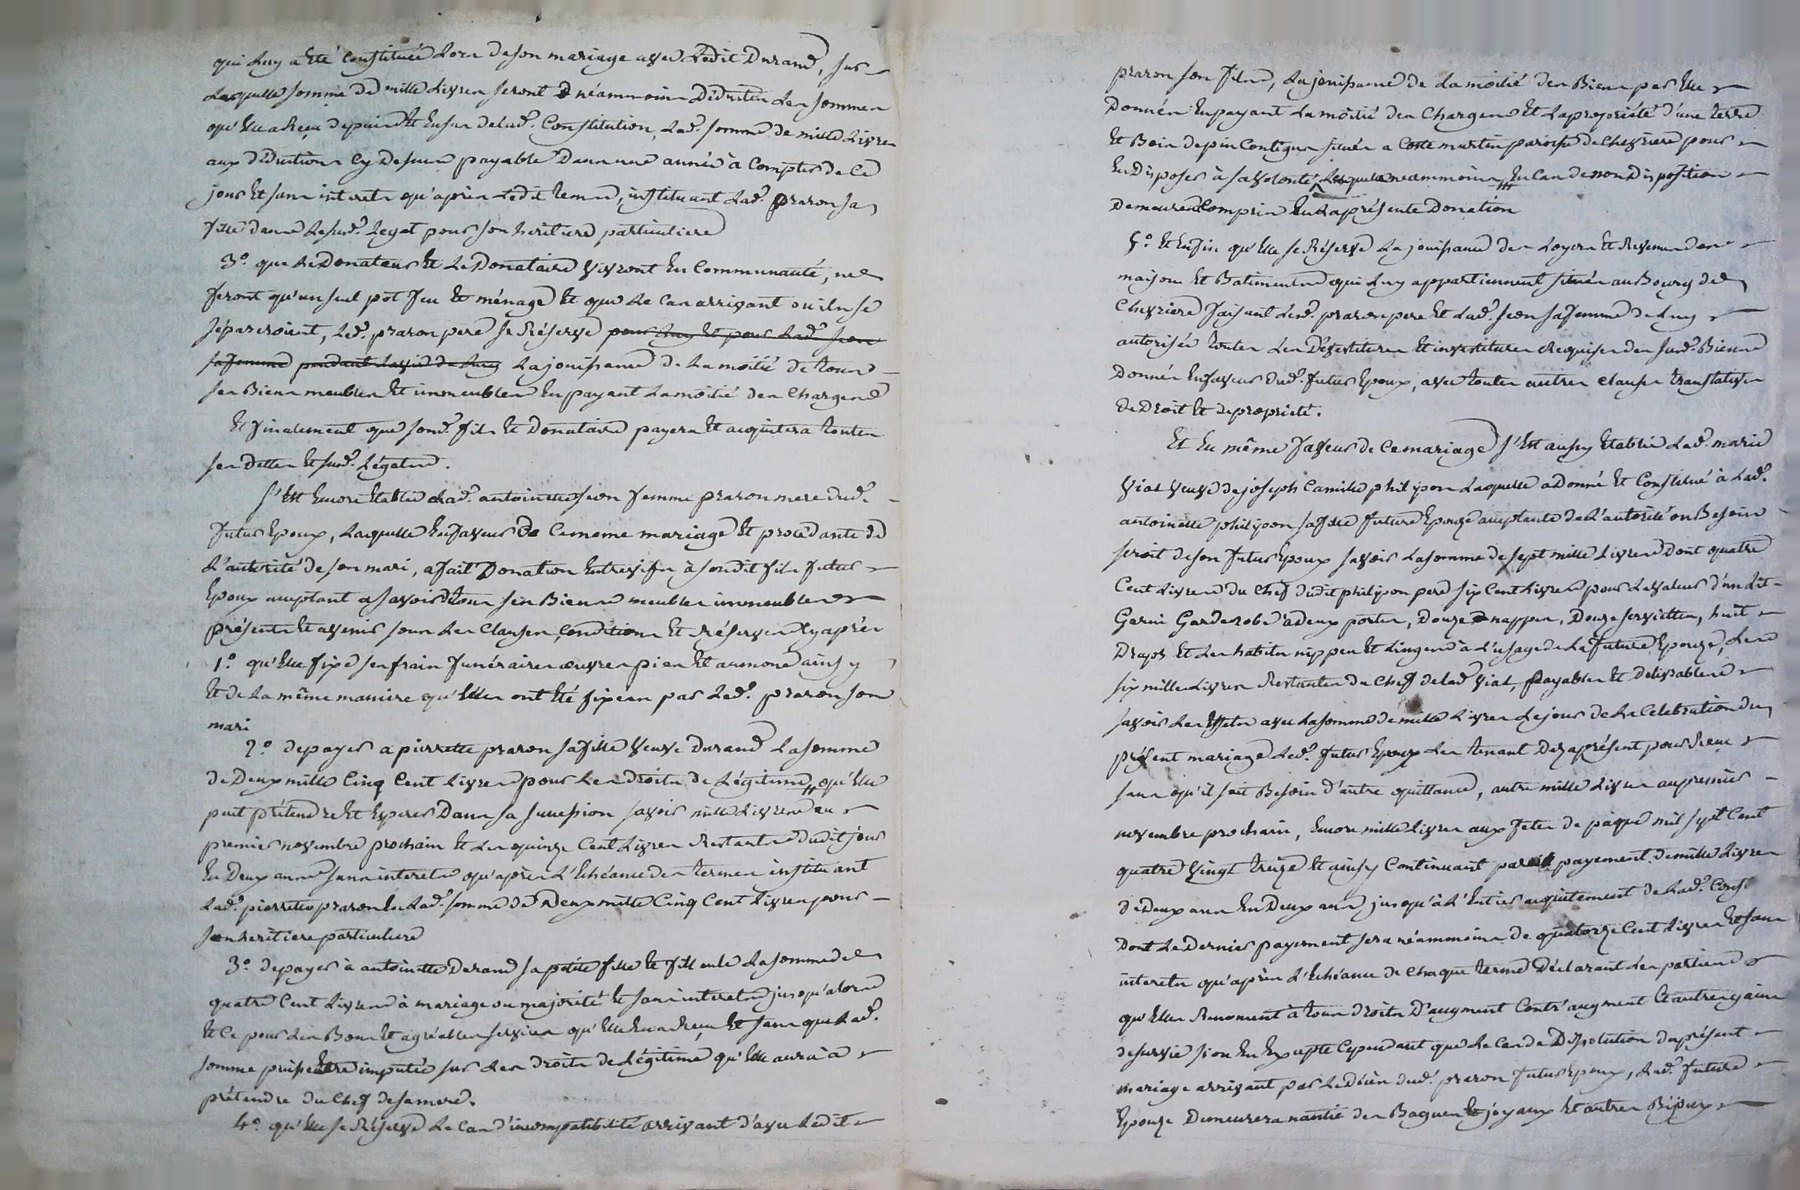 qui luy a été constituée lors de son mariage avec ledit Durand, sur
laquelle somme de mille livres seront néammoins déduites les sommes
qu'elle a reçu depuis et ensus de lad. constitution, lad. somme de mille livres
aux déductions cy dessus payable dans une année à compter de ce
jour et sans interets qu'après ledit terme, instituant lad. praron sa
fille dans le sud. legat pour son heritiere particuliere
3° que le Donateur et le Donataire vivront en communauté, ne
feront qu'un seul pot feu et ménage et que le cas arrivant ou ils se
sépareroient, led. praron pere se réserve pour luy et pour lad. sion
sa femme pendant la vie de luy la jouissance de la moitié de tous
ses Biens meubles et immeubles en payant la moitié des charges
et finalement que sond. fils et Donataire payera et acquitera toutes
ses dettes et sud. légats.
s'est encore établie lad. antoinette sion femme praron mere dud.
futur Epoux, laquelle en faveur de ce même mariage et procédante de
l'autorité de son mari, a fait Donation entrevifs à sondit fils futur
Epoux acceptant a savoir de tous ses Biens meubles immeubles
présents et avenir sous les clauses, conditions et réserves cy après
1° qu'elle fixe ses frais funéraires œuvres pies et aumone ainsy
et de la même maniere qu'elles ont été fixées par led. praron son
mari
2° de payer a pierrette praron sa fille veuve durand la somme
de Deux mille cinq cent livres pour les droits de légitime qu'elle
peut prétendre et esperer dans sa succession savoir mille livres au
premier novembre prochain et les quinze cent livres restants dudit jour
en deux ans sans interets qu'après l'échéance des termes instituant
lad. pierrette praron en lad. somme de Deux mille cinq cent livres pour
son heritiere particuliere
3° de payer à antoinette Durand sa petite fille et filleule la somme de
quatre cent livres à mariage ou majorité et sans interets jusqu'alors
et ce pour les Bons et agréables services qu'elle en a reçu et sans que lad.
somme puisse être imputée sur les droits de légitime qu'elle aura à
prétendre du chef de sa mere.
4° qu'elle se réserve le cas d'incompatibilité arrivant d'avec ledit
praron son fils, la jouissance de la moitié des Biens par elle
donnés en payant la moitié des charges et la propriété d'une terre
et Bois de pin contigus situés a Coste martin paroisse de chevrieres pour
en disposer à sa volonté lesquels néammoins en cas de non disposition
demeurent compris en la présente Donation
5° et enfin qu'elle se réserve la jouissance des loyers et revenus des
maison et Batiments qui luy appartiennent situés au Bourg de
chevrieres faisant led. praron pere et lad. sion sa femme de luy
autorisée toutes les dévestitures et investitures requises des sud. Biens
donnés en faveur dud. futur Epoux, avec toutes autres clauses translatives
de droit et de propriété.
Et en même faveur de ce mariage s'est aussy établie lad. marie
vial veuve de joseph camille philipon laquelle a donné et constitué à lad.
antoinette philipon sa fille future Epouze acceptante de l'autorité en Besoin
seroit de son futur Epoux savoir la somme de sept mille livres dont quatre
cent livres du chef dudit philipon pere six cent livres pour la valeur d'un lit
garni garderobe à deux portes, douze nappes, douze serviettes, huit
draps et les habits nippes et linges à l'usage de la future Epouze, les
six mille livres restantes du chef de lad. vial, payables et délivrables
savoir les effets avec la somme de mille livres le jour de la célébration du
présent mariage led. futur Epoux les tenant dez aprésent pour reçu
sans qu'il soit Besoin d'autre quittance, autre mille livres au premier
novembre prochain, encore mille livres aux fetes de paque mil sept cent
quatre vingt treize et ainsy continuant par payement de mille livres
de deux ans en Deux ans jusqu'à l'entier acquitement de lad. Const
dont le dernier payement sera néammoins de quatorze cent livres et sans
interets qu'après l'échéance de chaque terme déclarant les parties
qu'elles renoncent à tous droits d'augment contr'augment et autres gains
de survie si on en excepte cependant que le cas de dissolution du présent
mariage arrivant par le décès dud. praron futur Epoux, lad. future
Epouze demeurera nantie des Bagues et joyaux et autres Bijoux